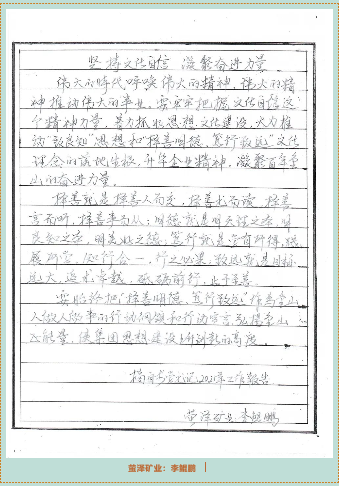 坚持文化自信 凝聚奋进力量
伟大的时代呼唤伟大的精神，伟大的精
神推动伟大的事业。要牢牢把握文化自信这
个精神力量，着力抓好思想文化建设，大力推
动“致良知”思想和“择善明德，笃行致远”文化
理念的落地生根，升华企业精神，凝聚百年
山的奋进力量。
择善就是择善人而交，择善书而读，择善
言而听，择善事而从；明德就是明天理之本，明
良知之本，明美好之德；笃行就是学有所得，
展所学，知行合一，行之必果；致远就是目标
远大，追求卓越，砥砺前行，止于至善。
要始终把“择善明德，笃行致远”作为
人做人做事的行动纲领和行动宣言，弘扬
正能量，使集团思想建设上升到新的高度。
2021年工作报告
萤泽矿业 李鲲鹏
萤泽矿业：李鲲鹏